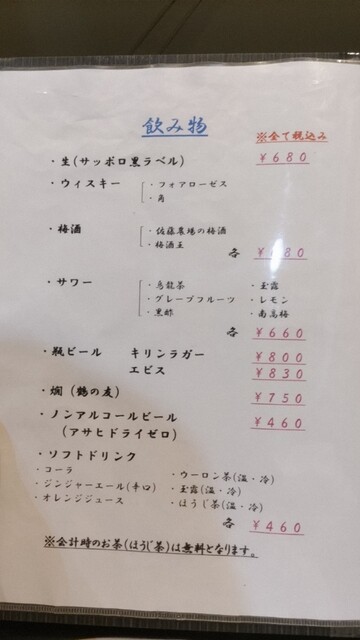 飲み物
※全て税込み
・生(サッポロ黒ラベル) ¥680
・ウィスキー ・フォアローゼス
・角
・梅酒 ・佐藤農場の梅酒
・梅酒王
各 80
・サワー ・烏龍茶 ・玉露
・グレープフルーツ ・レモン
・黒酢 ・南高梅
各 ¥660
・瓶ビール キリンラガー ¥800
エビス ¥830
・燗(鶴の友) ¥750
・ノンアルコールビール ¥460
(アサヒドライゼロ)
・ソフトドリンク
・コーラ ・ウーロン茶(温・冷)
・ジンジャーエール(辛口) ・玉露(温・冷)
・オレンジジュース ・ほうじ茶(温・冷)
各 ¥460
※会計時のお茶(ほうじ茶)は無料となります。